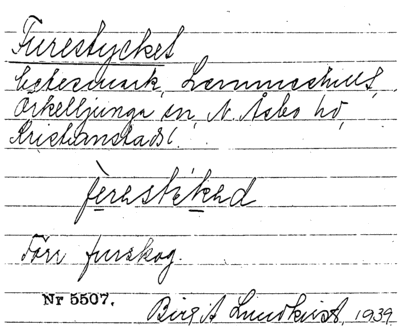 Furestycket
betesmark, Lemmeshult,
Örkelljunga sn, N. Åsbo hd,
Kristianstads l.
fœrestikad
Förr furskog.
Nr 5507.
Birgit Lundkvist, 1939